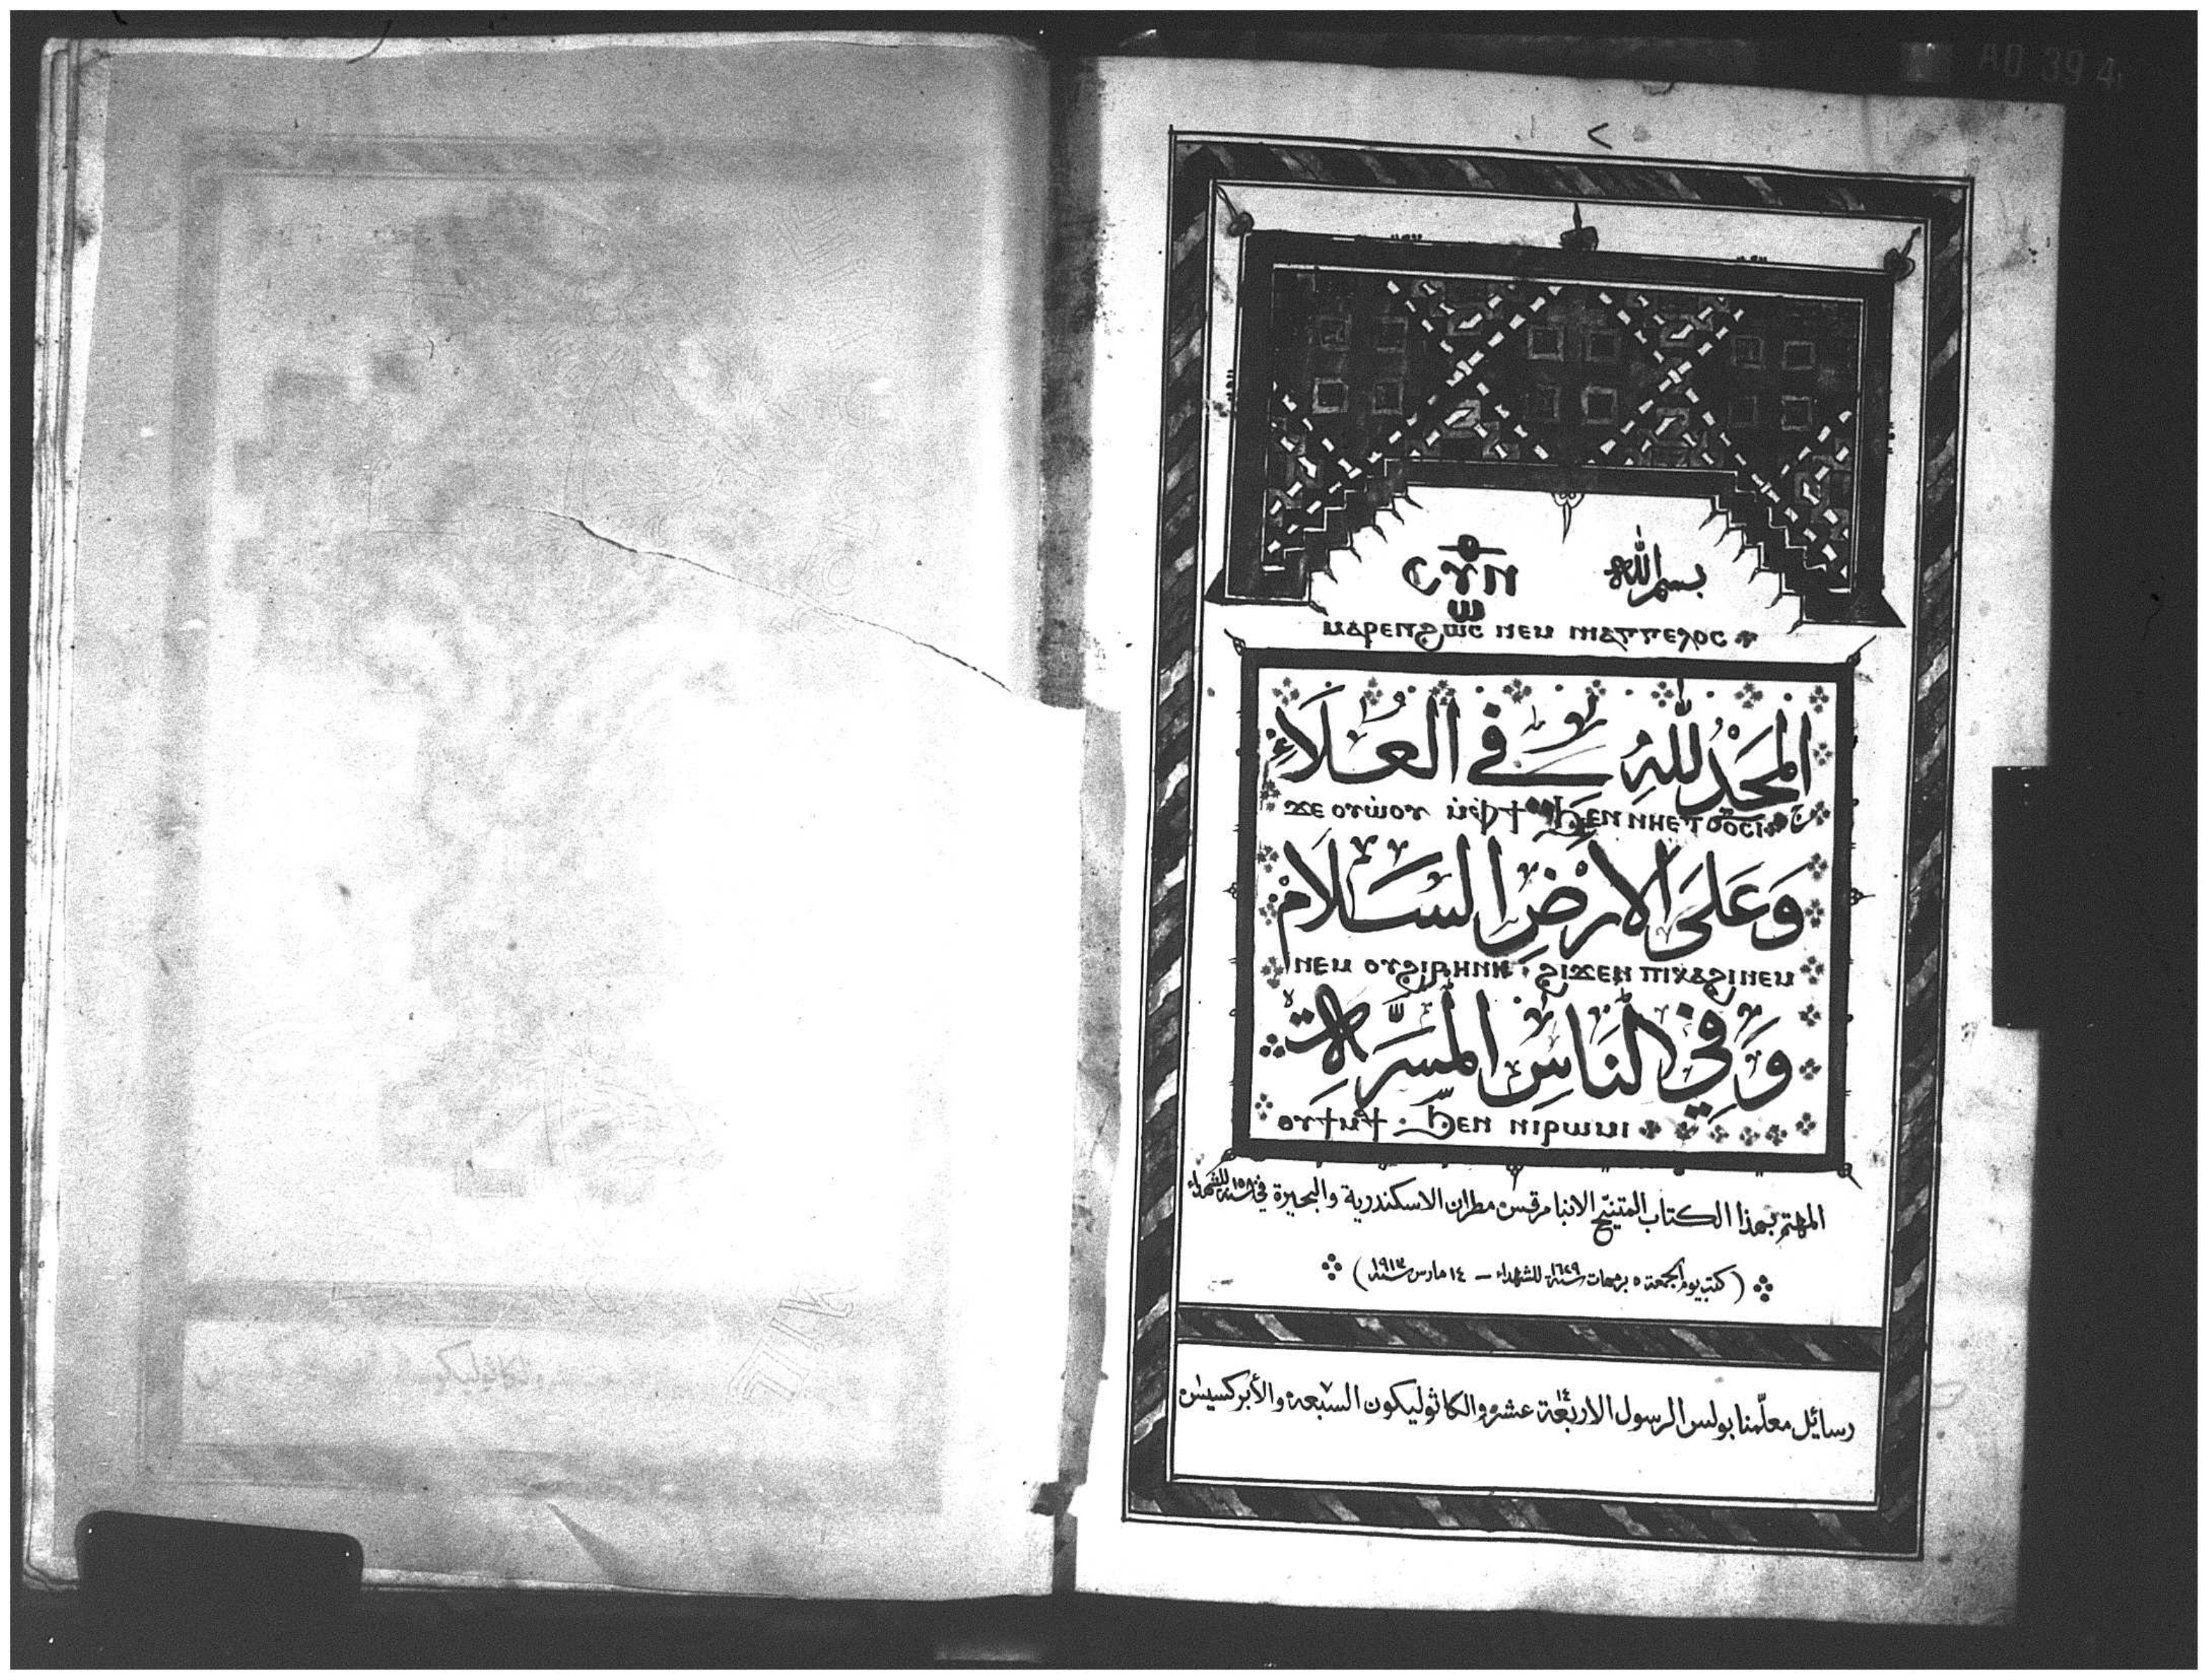 AO 39 4
<
بسم الله
ⲥⲩⲛ ⲑⲱ
ⲙⲁⲣⲉⲛϩⲱⲥ ⲛⲉⲙ ⲛⲓⲁⲅⲅⲉⲗⲟⲥ
المَجْدُ للهِ فِي العُلَاءِ
ϫⲉ ⲟⲩⲱⲟⲩ ⲙⲫϯ ϧⲉⲛ ⲛⲏⲉⲧϭⲟⲥⲓ
وَعَلَى الارْضِ السَّلَامْ
ⲛⲉⲙ ⲟⲩϩⲓⲣⲏⲛⲏ ϩⲓϫⲉⲛ ⲡⲓⲕⲁϩⲓ ⲛⲉⲙ
وَفِي النَاسِ المَسَرَّات
ⲟⲩϯⲙⲁϯ ϧⲉⲛ ⲛⲓⲣⲱⲙⲓ
المهتم بهذا الكتاب المتنيّح الانبا مرقس مطران الاسكندرية والبحيرة في سنة للشهداء
(كتب يوم الجمعة ٥ برمهات سنة ١٦٢٩ للشهداء – ١٤ مارس سنة ١٩١٣)
رسائل معلّمنا بولس الرسول الاربعة عشر والكاثوليكون السبعه والأبركسيس